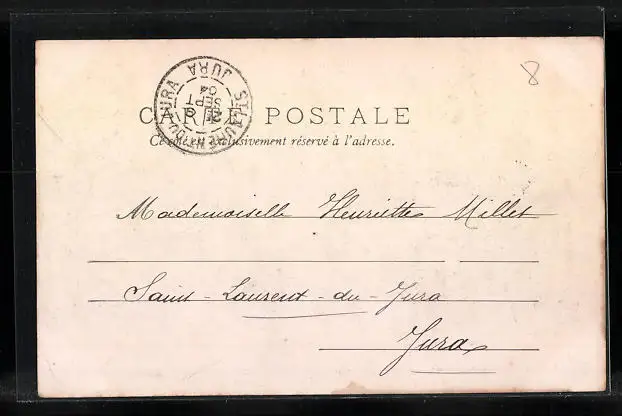 8
ST LAURENT-DU-JURA
JURA
SEPT
04
CARTE POSTALE
Ce côté est exclusivement réservé à l'adresse.
Mademoiselle Henriette Millet
Saint-Laurent-du-Jura
Jura